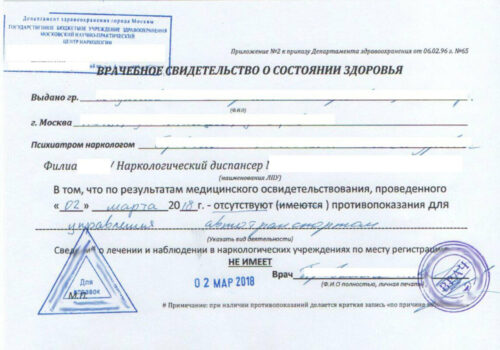 Департамент здравоохранения города Москвы
ГОСУДАРСТВЕННОЕ БЮДЖЕТНОЕ УЧРЕЖДЕНИЕ ЗДРАВООХРАНЕНИЯ
МОСКОВСКИЙ НАУЧНО-ПРАКТИЧЕСКИЙ
ЦЕНТР НАРКОЛОГИИ
Приложение №2 к приказу Департамента здравоохранения от 06.02.96 г. №65
ВРАЧЕБНОЕ СВИДЕТЕЛЬСТВО О СОСТОЯНИИ ЗДОРОВЬЯ
Выдано гр.
(Ф.И.О)
г. Москва
Психиатром наркологом
Филиа / Наркологический диспансер
(наименования ЛПУ)
В том, что по результатам медицинского освидетельствования, проведенного
« 02 » марта 2018 г. - отсутствуют (имеются ) противопоказания для
управления автотранспортом
(Указать вид деятельности)
Све о лечении и наблюдении в наркологических учреждениях по месту регистрации
НЕ ИМЕЕТ
02 МАР 2018
Врач
(Ф.И.О полностью, личная печать)
Для
справок
М.П.
ВРАЧ
# Примечание: при наличии противопоказаний делается краткая запись «по причине за